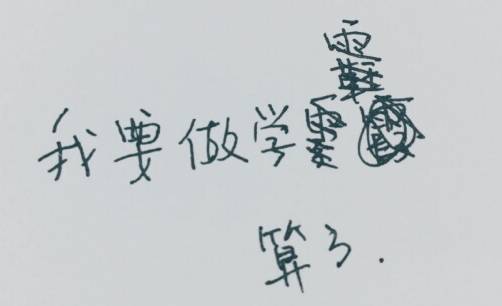 我要做学
算了.